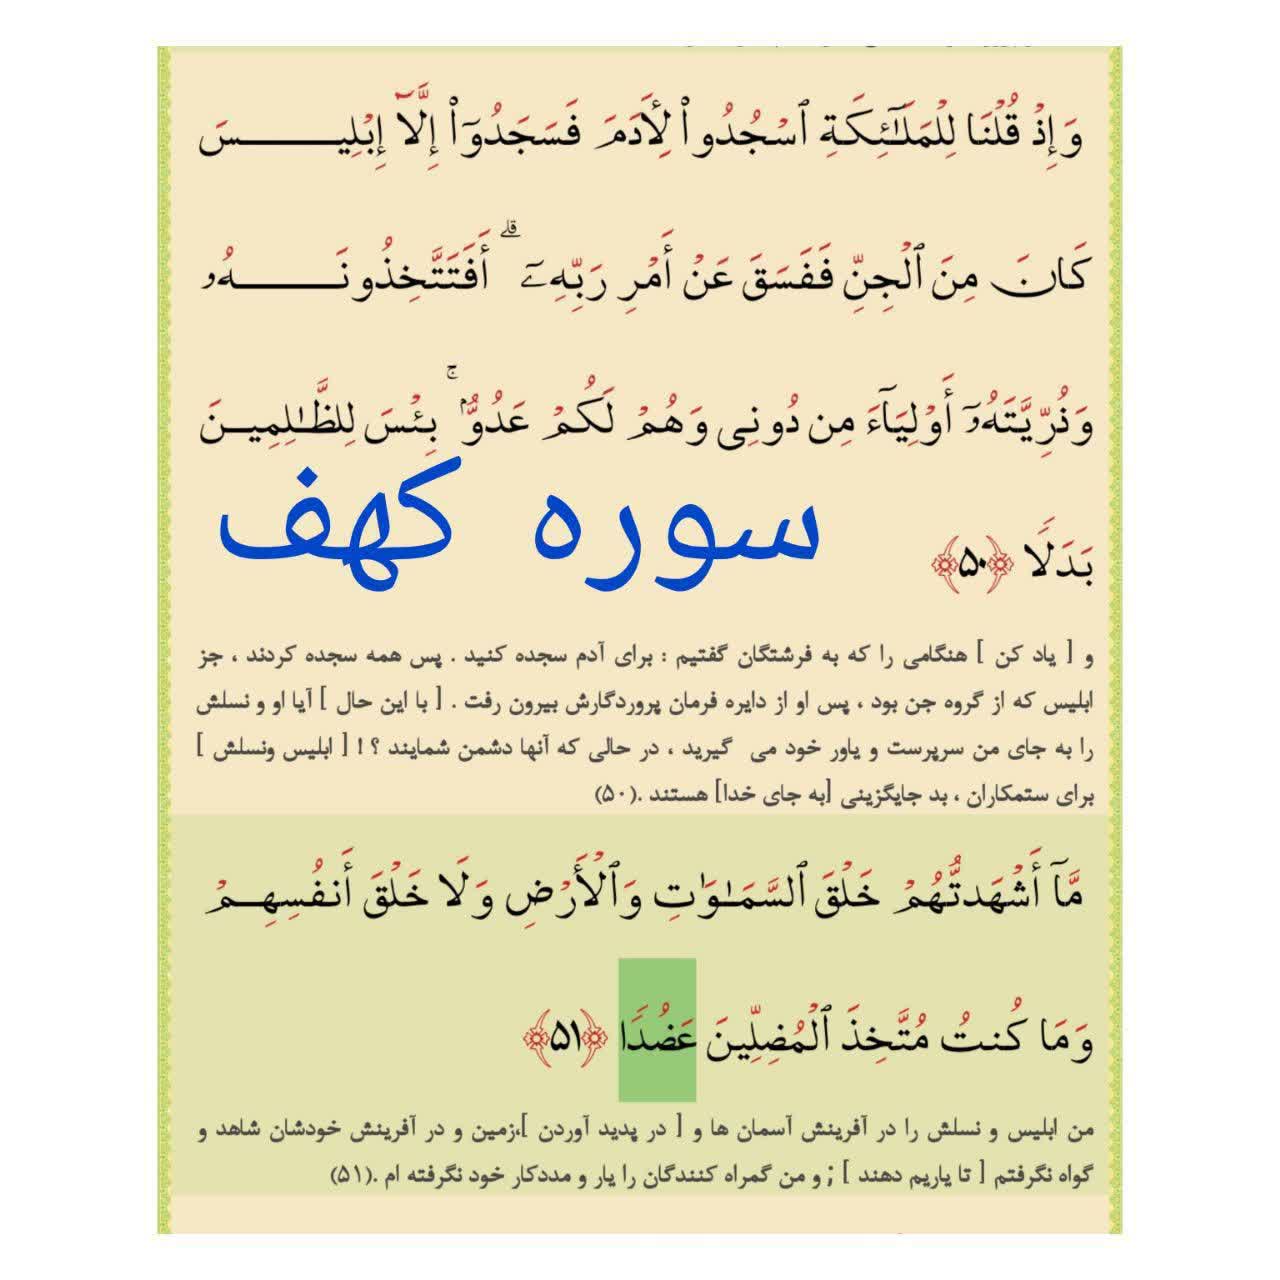 وَإِذْ قُلْنَا لِلْمَلَـٰٓئِكَةِ ٱسْجُدُوا۟ لِأَدَمَ فَسَجَدُوٓا۟ إِلَّآ إِبْلِيسَ
كَانَ مِنَ ٱلْجِنِّ فَفَسَقَ عَنْ أَمْرِ رَبِّهِۦٓ ۗ أَفَتَتَّخِذُونَهُۥ
وَذُرِّيَّتَهُۥٓ أَوْلِيَآءَ مِن دُونِى وَهُمْ لَكُمْ عَدُوٌّۢ ۚ بِئْسَ لِلظَّـٰلِمِينَ
بَدَلًا ﴿۵۰﴾
سوره کهف
و [ یاد کن ] هنگامی را که به فرشتگان گفتیم : برای آدم سجده کنید . پس همه سجده کردند ، جز
ابلیس که از گروه جن بود ، پس او از دایره فرمان پروردگارش بیرون رفت . [ با این حال ] آیا او و نسلش
را به جای من سرپرست و یاور خود می گیرید ، در حالی که آنها دشمن شمایند ؟ ! [ ابلیس ونسلش ]
برای ستمکاران ، بد جایگزینی [به جای خدا] هستند .(۵۰)
مَّآ أَشْهَدتُّهُمْ خَلْقَ ٱلسَّمَـٰوَٰتِ وَٱلْأَرْضِ وَلَا خَلْقَ أَنفُسِهِمْ
وَمَا كُنتُ مُتَّخِذَ ٱلْمُضِلِّينَ عَضُدًا ﴿۵۱﴾
من ابلیس و نسلش را در آفرینش آسمان ها و [ در پدید آوردن ]،زمین و در آفرینش خودشان شاهد و
گواه نگرفتم [ تا یاریم دهند ] ; و من گمراه کنندگان را یار و مددکار خود نگرفته ام .(۵۱)